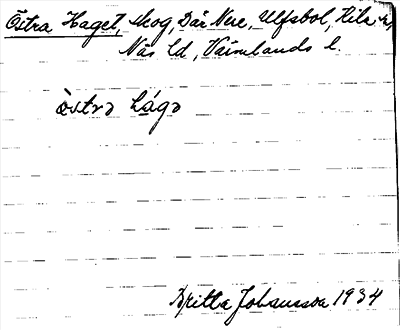 Östra Haget, skog, Där Nere, Ulfsbol, Kila sn,
Näs hd, Värmlands l.
òstrə hágə
Britta Johansson 1934